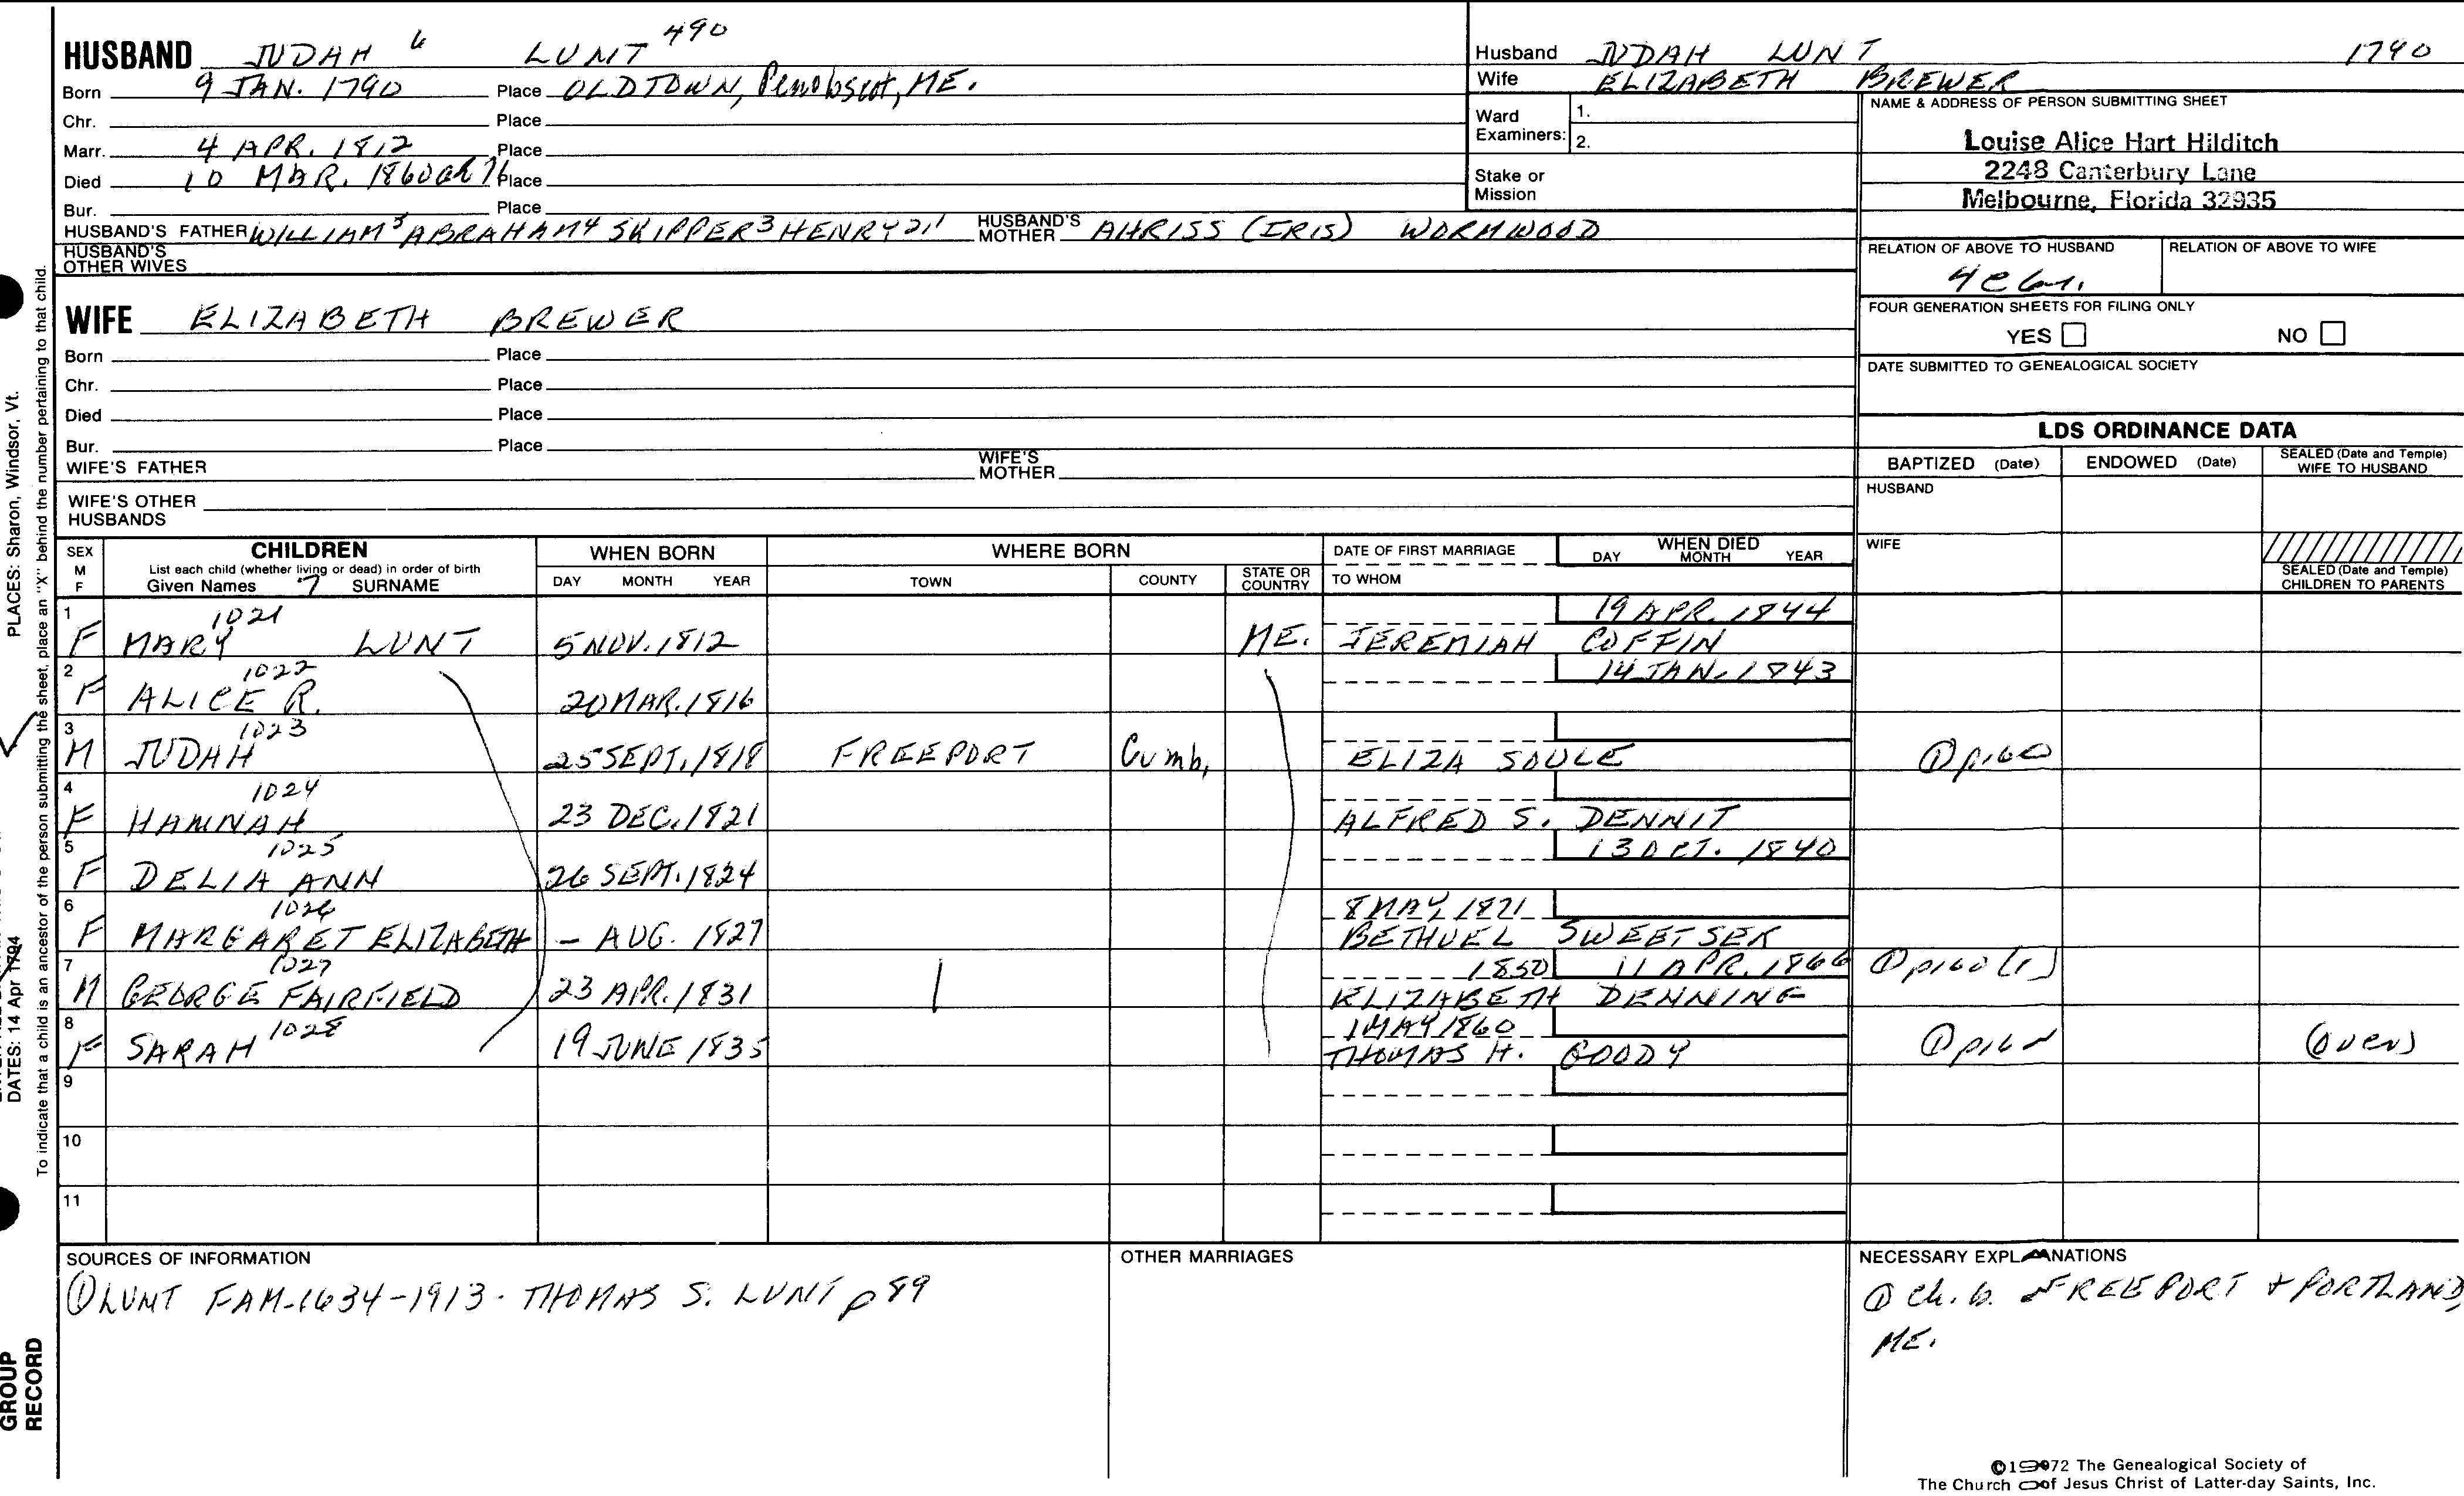 HUSBAND JUDAH 6 LUNT 490
Born 9 JAN. 1790 Place OLDTOWN, Penobscot, ME.
Chr. Place
Marr. 4 APR. 1812 Place
Died 10 MAR. 1860 Place
Bur. Place
HUSBAND'S FATHER WILLIAM5 ABRAHAM4 SKIPPER3 HENRY2,1 HUSBAND'S MOTHER AHRISS (IRIS) WORMWOOD
HUSBAND'S OTHER WIVES
WIFE ELIZABETH BREWER
Born Place
Chr. Place
Died Place
Bur. Place
WIFE'S FATHER WIFE'S MOTHER
WIFE'S OTHER HUSBANDS
Husband JUDAH LUNT 1790
Wife ELIZABETH BREWER
Ward Examiners: 1.
2.
Stake or Mission
NAME & ADDRESS OF PERSON SUBMITTING SHEET
Louise Alice Hart Hilditch
2248 Canterbury Lane
Melbourne, Florida 32935
RELATION OF ABOVE TO HUSBAND RELATION OF ABOVE TO WIFE
FOUR GENERATION SHEETS FOR FILING ONLY
YES NO
DATE SUBMITTED TO GENEALOGICAL SOCIETY
LDS ORDINANCE DATA
BAPTIZED (Date) ENDOWED (Date) SEALED (Date and Temple) WIFE TO HUSBAND
HUSBAND
WIFE
SEALED (Date and Temple) CHILDREN TO PARENTS
SEX M F
CHILDREN
List each child (whether living or dead) in order of birth
Given Names 7 SURNAME
WHEN BORN
DAY MONTH YEAR
WHERE BORN
TOWN COUNTY STATE OR COUNTRY
DATE OF FIRST MARRIAGE
TO WHOM
WHEN DIED
DAY MONTH YEAR
1 1021 19 APR. 1844
F MARY LUNT 5 NOV. 1812 ME. JEREMIAH COFFIN
2 1022 14 JAN. 1843
F ALICE R. 20 MAR. 1816
3 1023
M JUDAH 25 SEPT. 1818 FREEPORT Cumb, ELIZA SOULE
4 1024
F HANNAH 23 DEC. 1821 ALFRED S. DENNIT
5 1025 13 OCT. 1840
F DELIA ANN 26 SEPT. 1824
6 1026 8 MAY, 1871
F MARGARET ELIZABETH - AUG. 1827 BETHUEL SWEETSER
7 1027 1850 11 APR. 1866
M GEORGE FAIRFIELD 23 APR. 1831 ELIZABETH DENNING
8 1028 1 MAY 1860
F SARAH 19 JUNE 1835 THOMAS H. GOODY (over)
9
10
11
SOURCES OF INFORMATION
① LUNT FAM-1634-1913. THOMAS S. LUNT p 89
OTHER MARRIAGES
NECESSARY EXPLANATIONS
① Ch. b. FREEPORT + PORTLAND,
ME.
©1972 The Genealogical Society of
The Church of Jesus Christ of Latter-day Saints, Inc.
PLACES: Sharon, Windsor, Vt.
DATES: 14 Apr 1794
To indicate that a child is an ancestor of the person submitting the sheet, place an "X" behind the number pertaining to that child.
GROUP
RECORD